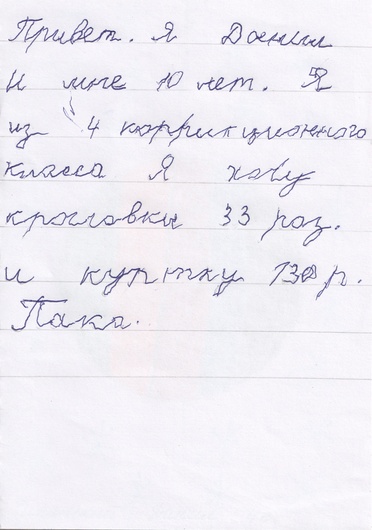 Привет. Я Данил
и мне 10 лет. Я
из 4 коррикционного
класса Я хочу
кросовки 33 раз.
и куртку 130 р.
Пака.